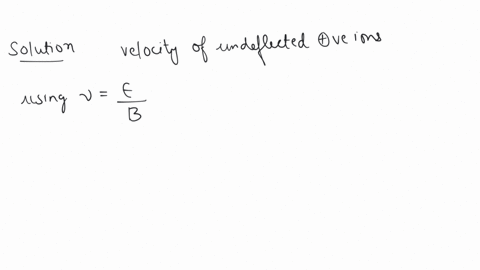 Solution velocity of undeflected ⊕ve ions
using v = E/B